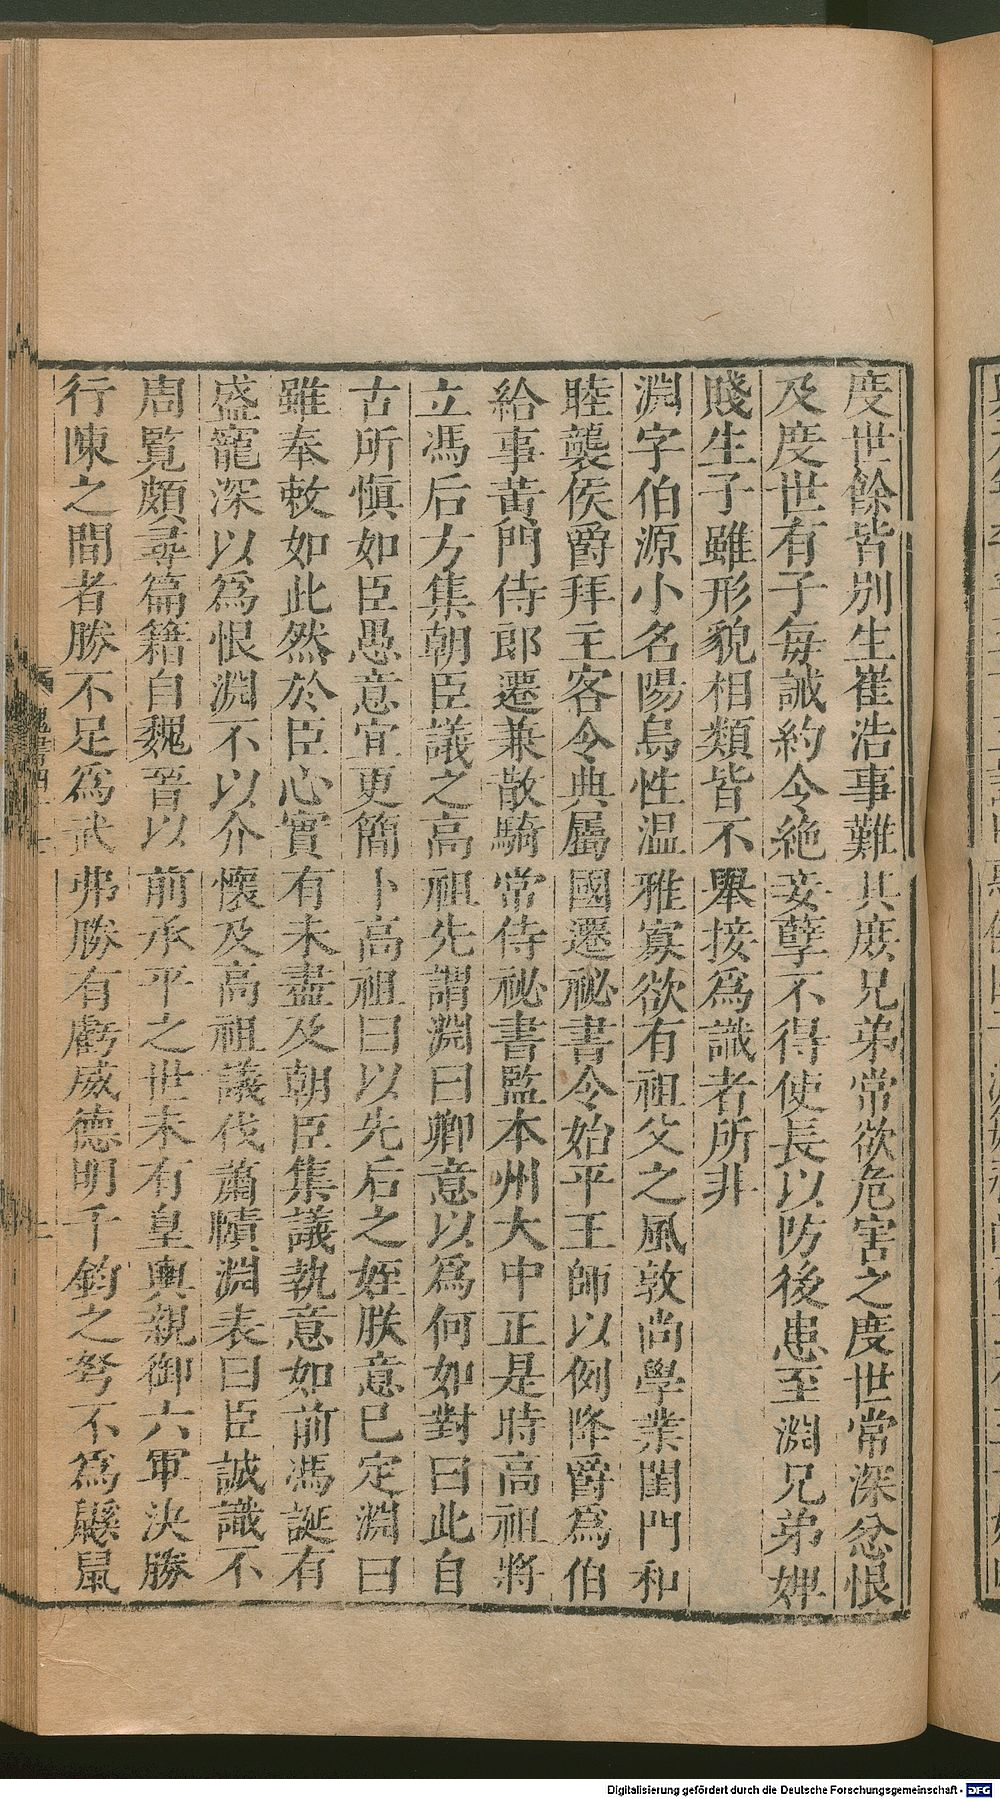 度世餘皆别生崔浩事難其庶兄弟常欲危害之度世常深忿恨
及度世有子每誡約令絶妾孽不得使長以防後患至淵兄弟婢
賤生子雖形貌相類皆不舉接爲識者所非
淵字伯源小名陽烏性温雅寡欲有祖父之風敦尚學業閨門和
睦襲侯爵拜主客令典屬國遷祕書令始平王師以例降爵爲伯
給事黄門侍郎遷兼散騎常侍祕書監本州大中正是時高祖將
立馮后方集朝臣議之高祖先謂淵曰卿意以爲何如對曰此自
古所愼如臣愚意宜更簡卜高祖曰以先后之姪朕意已定淵曰
雖奉敕如此然於臣心實有未盡及朝臣集議執意如前馮誕有
盛寵深以爲恨淵不以介懷及高祖議伐蕭賾淵表曰臣誠識不
周覧頗尋篇籍自魏晉以前承平之世未有皇輿親御六軍決勝
行陳之間者勝不足爲武弗勝有虧威德明千鈞之弩不爲鼷鼠
魏書四
Digitalisierung gefördert durch die Deutsche Forschungsgemeinschaft - DFG